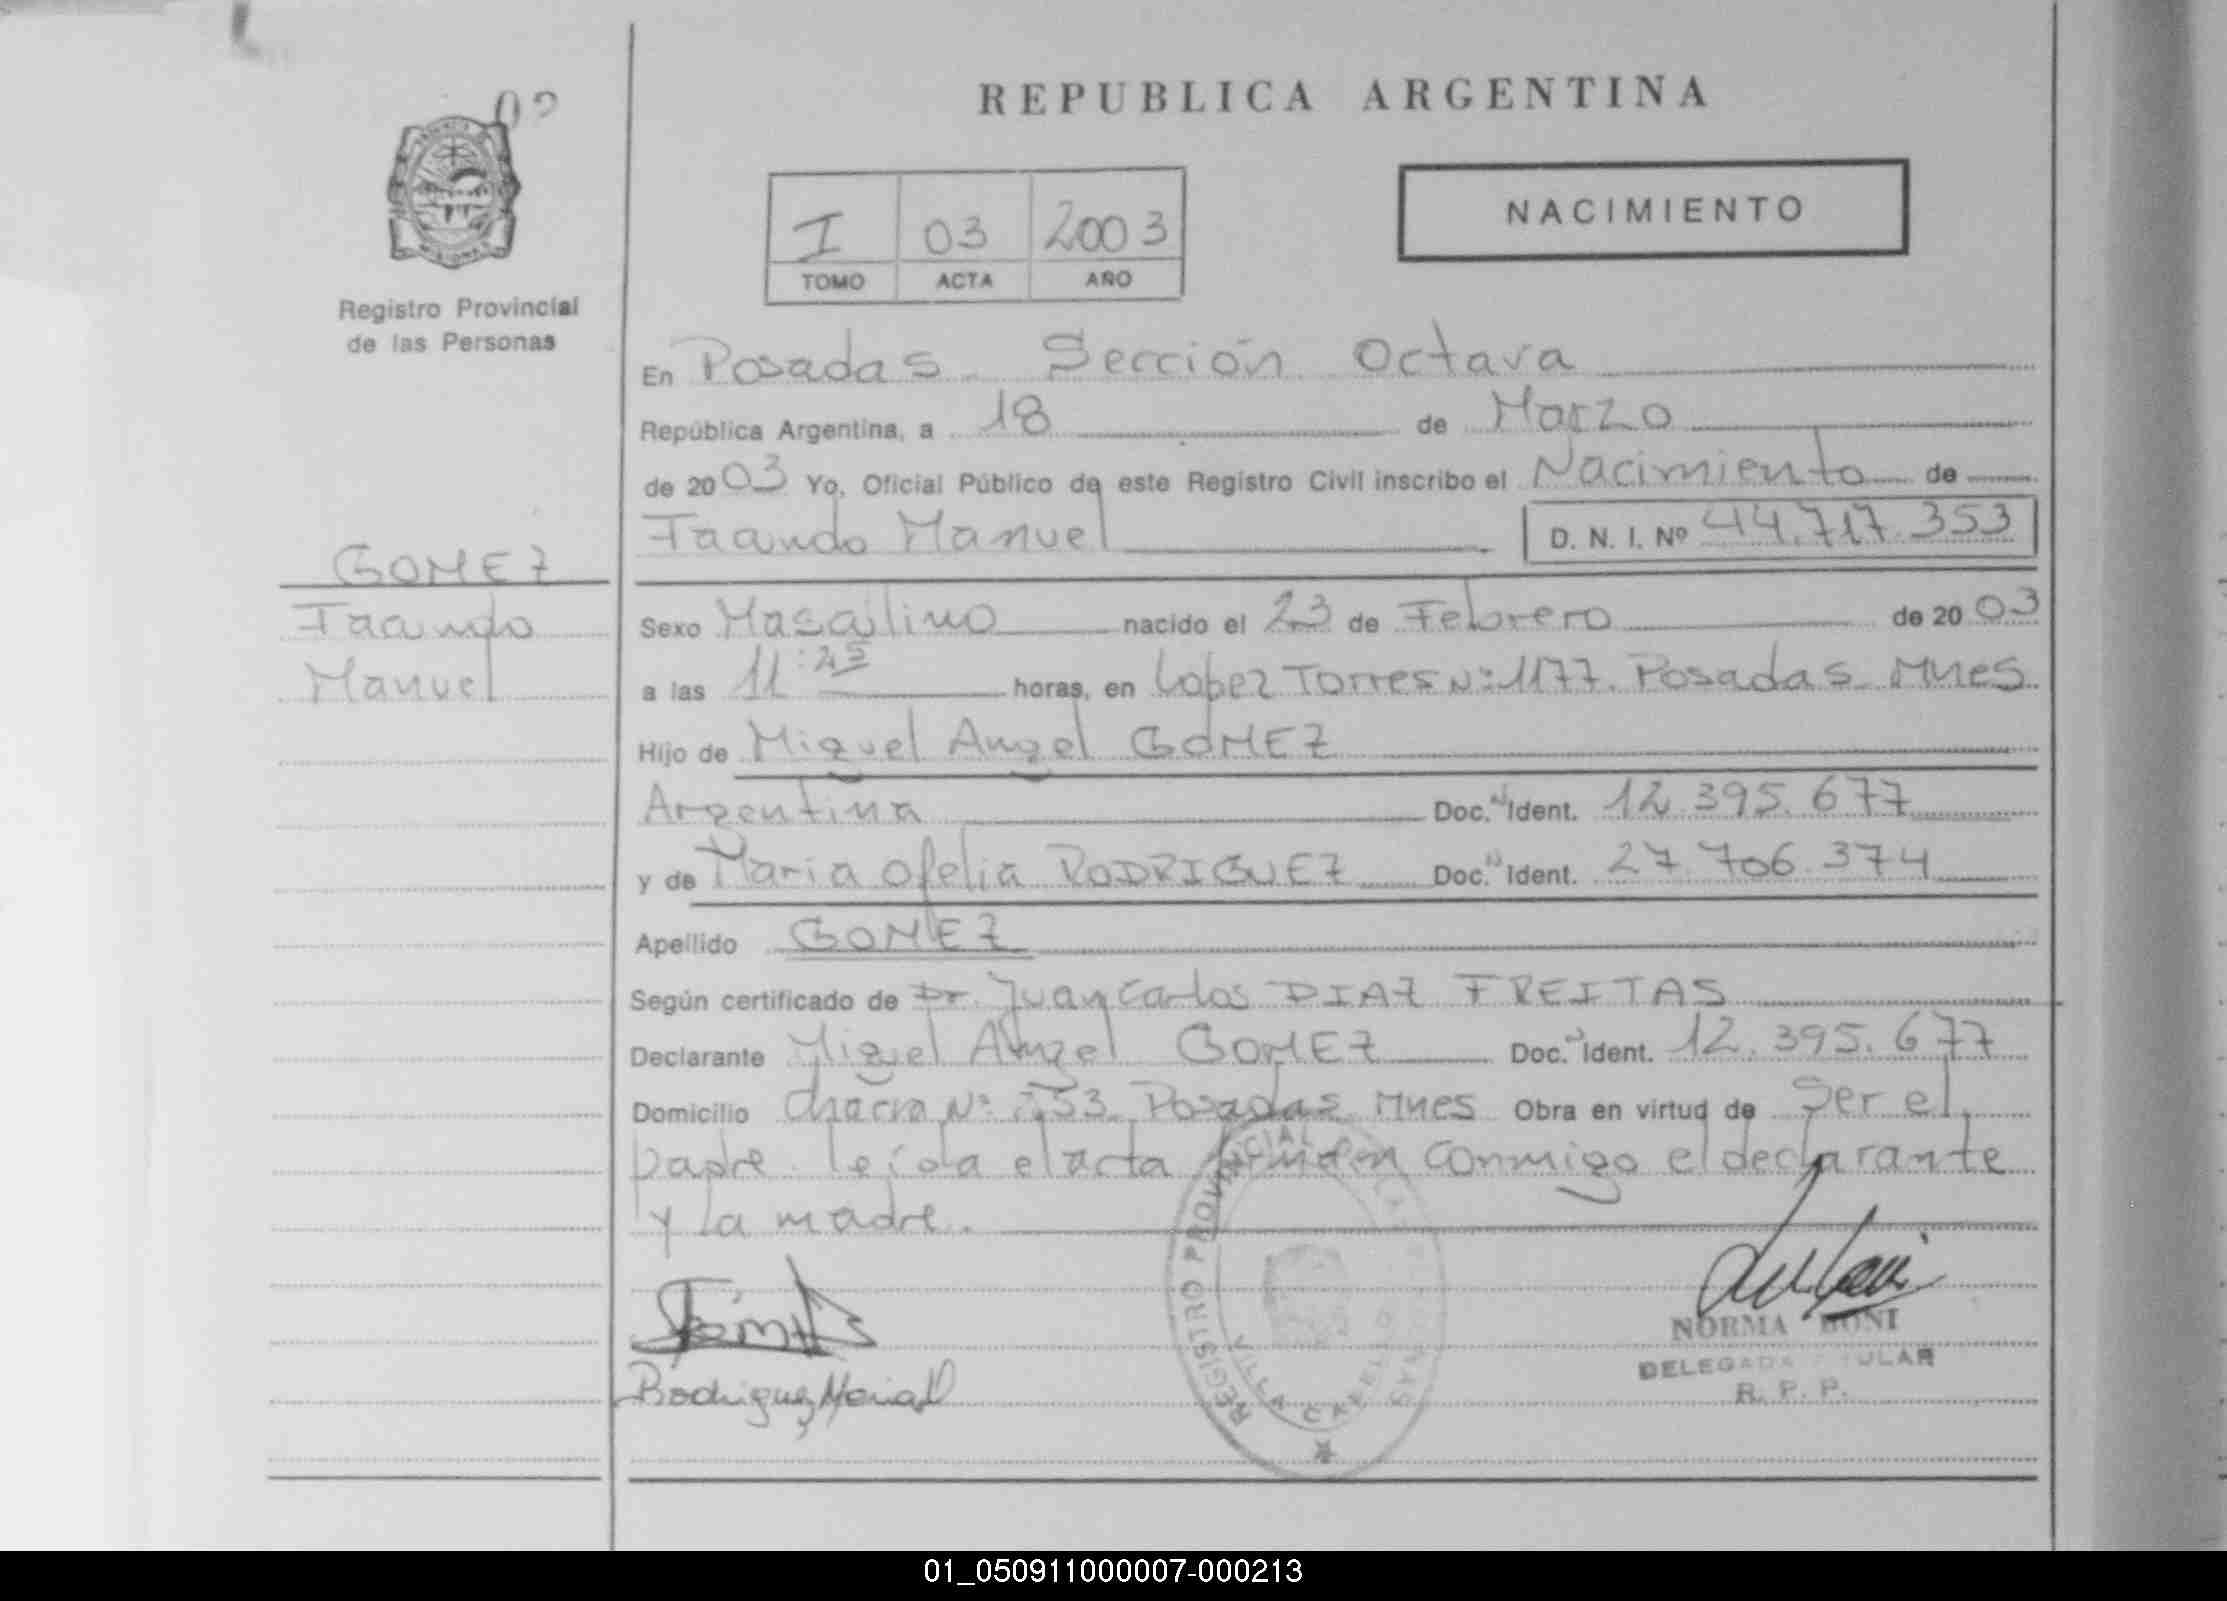 REPUBLICA ARGENTINA
Registro Provincial
de las Personas
I 03 2003
TOMO ACTA AÑO
NACIMIENTO
En Posadas. Sección Octava
República Argentina, a 18 de Marzo
de 2003 Yo, Oficial Público de este Registro Civil inscribo el Nacimiento de
Facundo Manuel D. N. I. Nº 44.717.353
GOMEZ
Facundo
Manuel
Sexo Masculino nacido el 23 de Febrero de 2003
a las 11:25 horas, en Lopez Torres Nº 1177. Posadas Mnes
Hijo de Miguel Angel GOMEZ
Argentina Doc. Ident. 12.395.677
y de Maria Ofelia RODRIGUEZ Doc. Ident. 27.706.374
Apellido GOMEZ
Según certificado de Dr. Juan Carlos DIAZ FREITAS
Declarante Miguel Angel GOMEZ Doc. Ident. 12.395.677
Domicilio Chacra Nº Posadas Mnes Obra en virtud de Ser el
padre. leída el acta firman conmigo el declarante
y la madre.
REGISTRO PROVINCIAL
VILLA CABELLO
NORMA BONI
DELEGADA TITULAR
R. P. P.
Rodriguez Maria
01_050911000007-000213